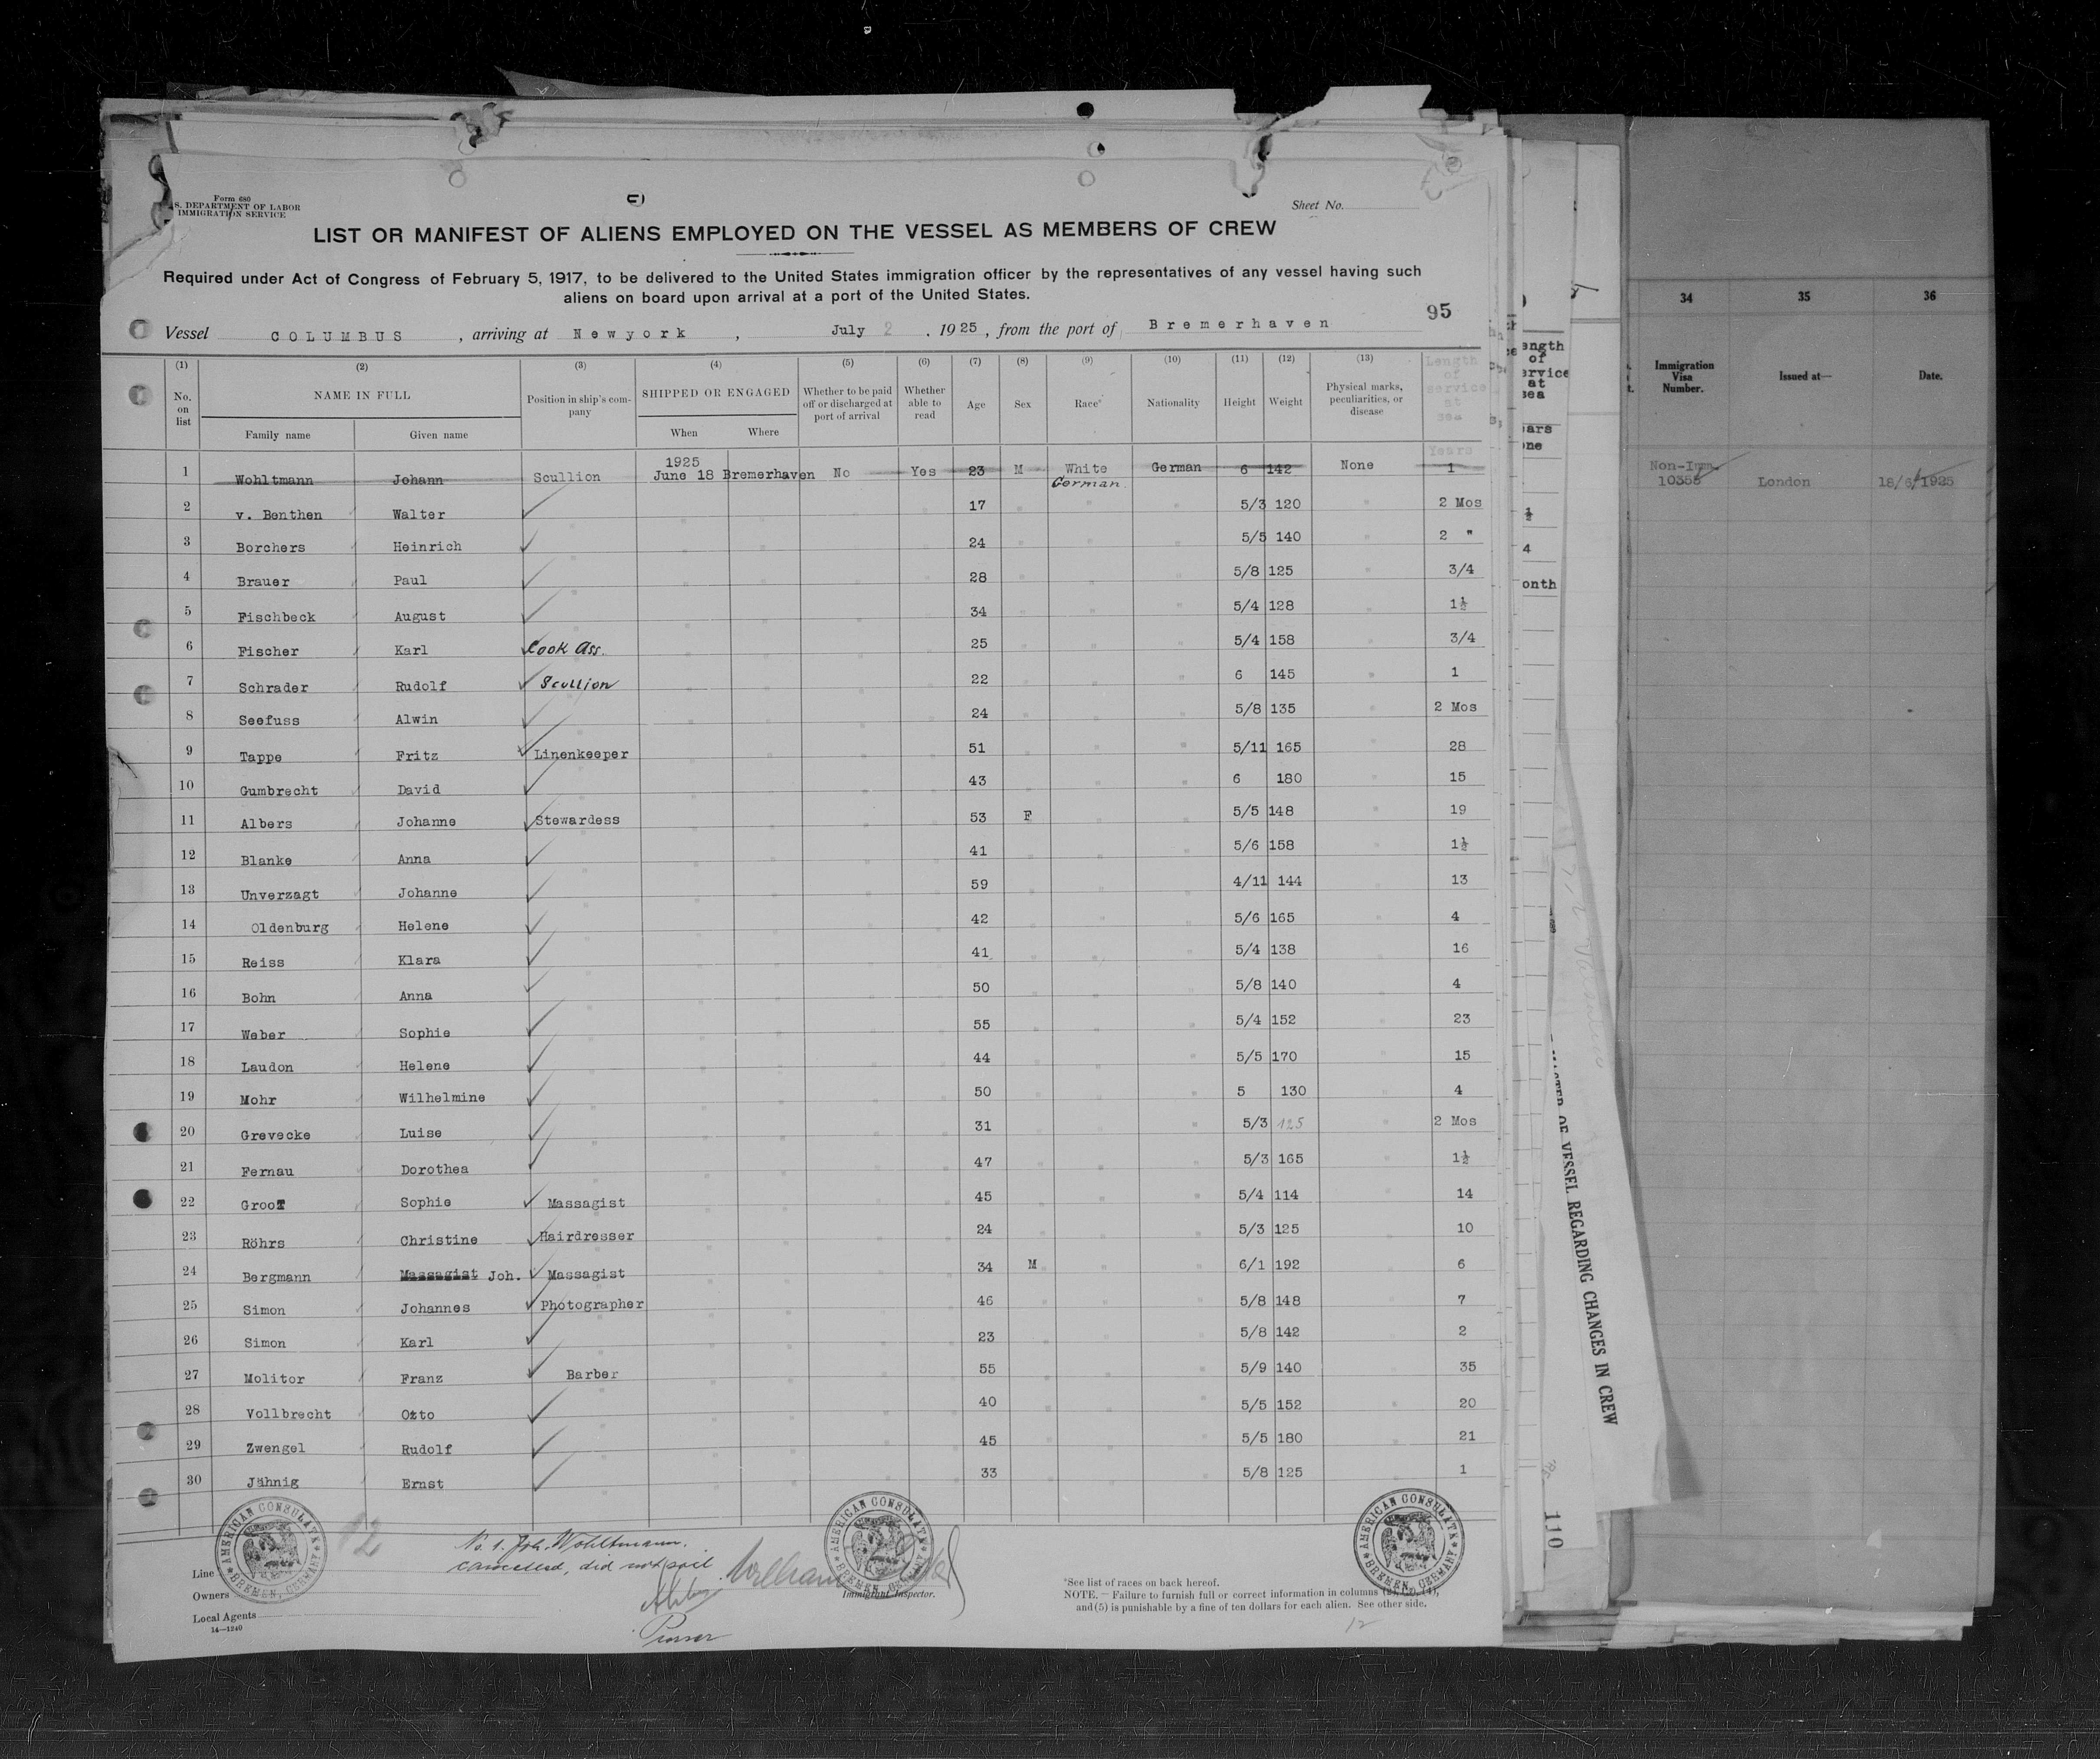 Form 680
S. DEPARTMENT OF LABOR
IMMIGRATION SERVICE
Sheet No.
LIST OR MANIFEST OF ALIENS EMPLOYED ON THE VESSEL AS MEMBERS OF CREW
Required under Act of Congress of February 5, 1917, to be delivered to the United States immigration officer by the representatives of any vessel having such
aliens on board upon arrival at a port of the United States.
95
Vessel COLUMBUS, arriving at Newyork, July 2, 1925, from the port of Bremerhaven
(1) (2) (3) (4) (5) (6) (7) (8) (9) (10) (11) (12) (13)
No. on list NAME IN FULL Family name Given name Position in ship's company SHIPPED OR ENGAGED When Where Whether to be paid off or discharged at port of arrival Whether able to read Age Sex Race* Nationality Height Weight Physical marks, peculiarities, or disease Length of service at sea
Years
1925
1 Wohltmann Johann Scullion June 18 Bremerhaven No Yes 23 M White German 6 142 None 1
German
2 v. Benthen Walter 17 5/3 120 2 Mos
3 Borchers Heinrich 24 5/5 140 2 "
4 Brauer Paul 28 5/8 125 3/4
5 Fischbeck August 34 5/4 128 1½
6 Fischer Karl Cook Ass. 25 5/4 158 3/4
7 Schrader Rudolf Scullion 22 6 145 1
8 Seefuss Alwin 24 5/8 135 2 Mos
9 Tappe Fritz Linenkeeper 51 5/11 165 28
10 Gumbrecht David 43 6 180 15
11 Albers Johanne Stewardess 53 F 5/5 148 19
12 Blanke Anna 41 5/6 158 1½
13 Unverzagt Johanne 59 4/11 144 13
14 Oldenburg Helene 42 5/6 165 4
15 Reiss Klara 41 5/4 138 16
16 Bohn Anna 50 5/8 140 4
17 Weber Sophie 55 5/4 152 23
18 Laudon Helene 44 5/5 170 15
19 Mohr Wilhelmine 50 5 130 4
20 Grevecke Luise 31 5/3 125 2 Mos
21 Fernau Dorothea 47 5/3 165 1½
22 Groot Sophie Massagist 45 5/4 114 14
23 Röhrs Christine Hairdresser 24 5/3 125 10
24 Bergmann Massagist Joh. Massagist 34 M 6/1 192 6
25 Simon Johannes Photographer 46 5/8 148 7
26 Simon Karl 23 5/8 142 2
27 Molitor Franz Barber 55 5/9 140 35
28 Vollbrecht Otto 40 5/5 152 20
29 Zwengel Rudolf 45 5/5 180 21
30 Jähnig Ernst 33 5/8 125 1
AMERICAN CONSULATE BREMEN, GERMANY
AMERICAN CONSULATE BREMEN, GERMANY
AMERICAN CONSULATE BREMEN, GERMANY
12
No. 1. Joh. Wohltmann.
cancelled, did not sail
Purser
Line
Owners
Local Agents
14—1240
Immigrant Inspector.
*See list of races on back hereof.
NOTE.—Failure to furnish full or correct information in columns (2), (3), (4),
and (5) is punishable by a fine of ten dollars for each alien. See other side.
12
ength
of
ervice
at
sea
ears
one
½
4
onth
OF VESSEL REGARDING CHANGES IN CREW
110
34 35 36
Immigration Visa Number. Issued at— Date.
Non-Imm. 10355 London 18/6/1925